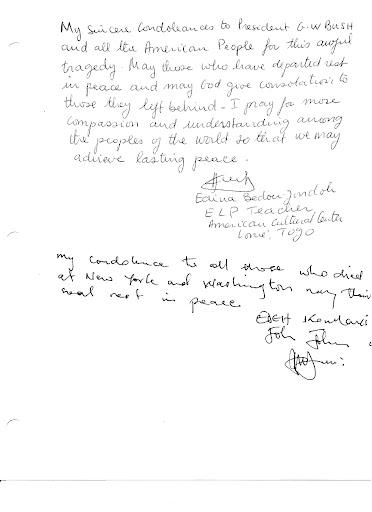 My Sincere Condoleances to President G.W BUSH
and all the American People for this awful
tragedy. May those who have departed rest
in peace and may God give consolation to
those they left behind - I pray for more
compassion and understanding among
the peoples of the world so that we may
achieve lasting peace.
Edina Bedou
ELP Teacher
American Cultural Center
Lome, TOGO
my condolence to all those who died
at New York and Washington may thir
soal rest in peace
EBEH
John